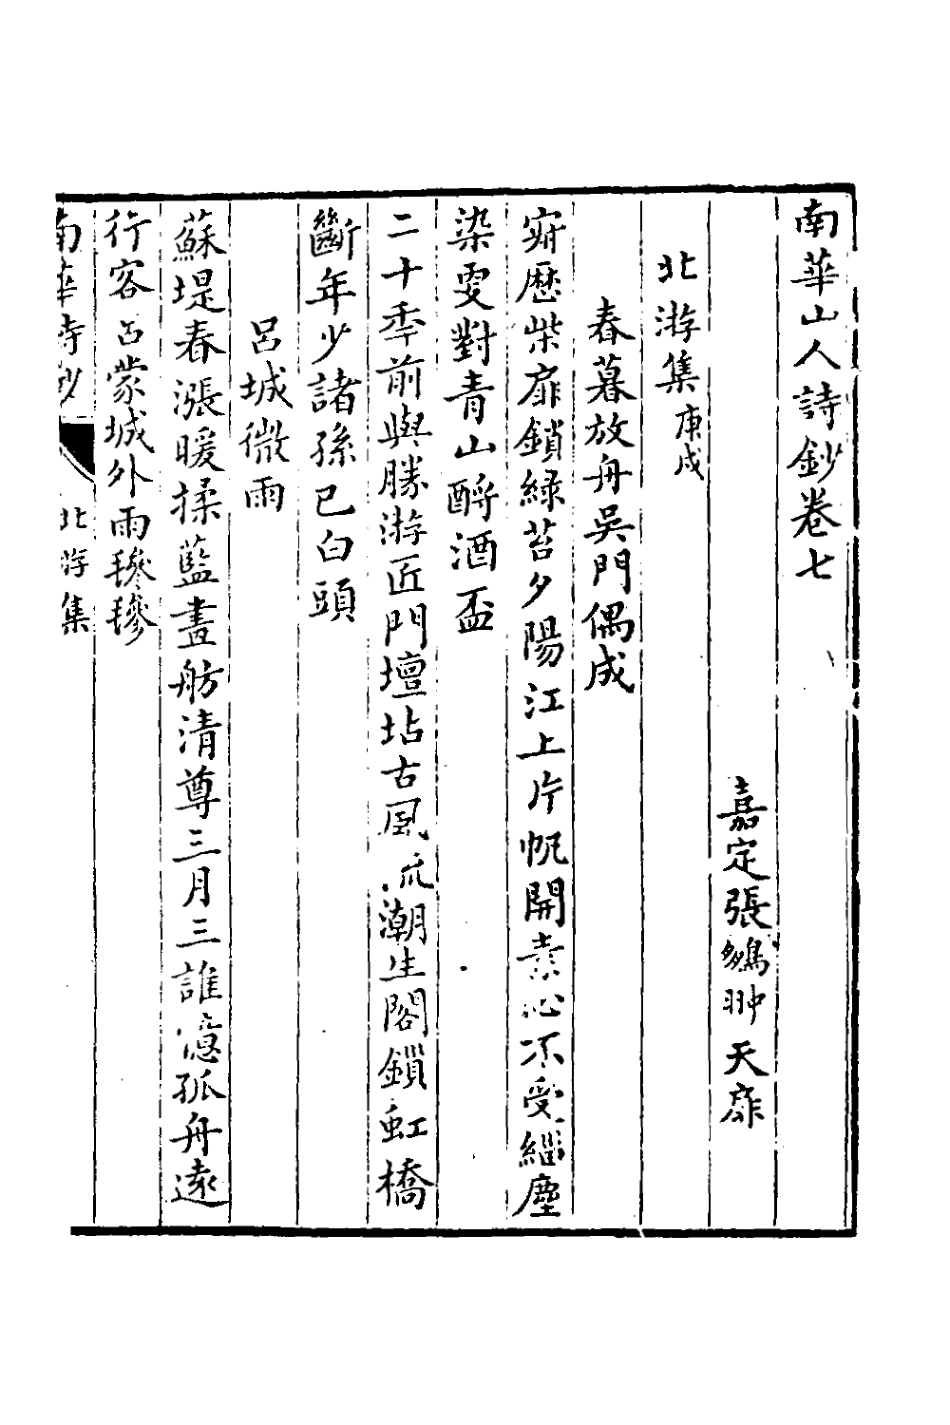 南華山人詩鈔卷七
嘉定張鵬翀天扉
北游集庚戌
春暮放舟吳門偶成
寂歷柴扉鎖綠苔夕陽江上片帆開素心不受緇塵
染更對青山酹酒盃
二十年前與勝游匠門壇坫古風流潮生閣鎖虹橋
斷年少諸孫已白頭
呂城微雨
蘇堤春漲暖揉藍畫舫清尊三月三誰憶孤舟遠
行客呂蒙城外雨毿毿
南華詩鈔 北游集